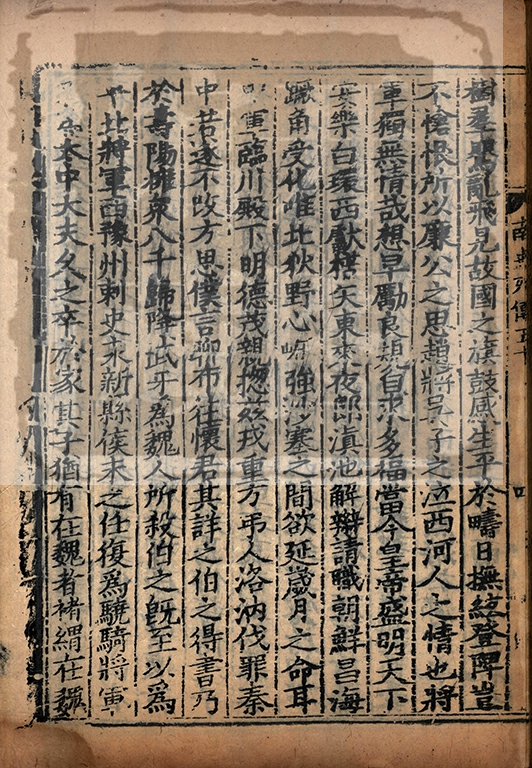 樹羣鶯亂飛見故國之旗鼓感生平於疇日撫絃登陴豈
不愴恨所以廉公之思趙將吳子之泣西河人之情也將
軍獨無情哉想早勵良規自求多福當今皇帝盛明天下
安樂白環西獻楛矢東來夜郎滇池解辮請職朝鮮昌海
蹶角受化唯北狄野心崛強沙塞之間欲延歲月之命耳
軍臨川殿下明德茂親揔兹戎重方弔人洛汭伐罪秦
中若遂不改方思僕言聊布往懷君其詳之伯之得書乃
於壽陽擁衆八千歸降武牙爲魏人所殺伯之旣至以爲
平北將軍西豫州刺史永新縣侯未之任復爲驍騎將軍
爲太中大夫久之卒於家其子猶有在魏者褚緭在魏
南史列傳五十